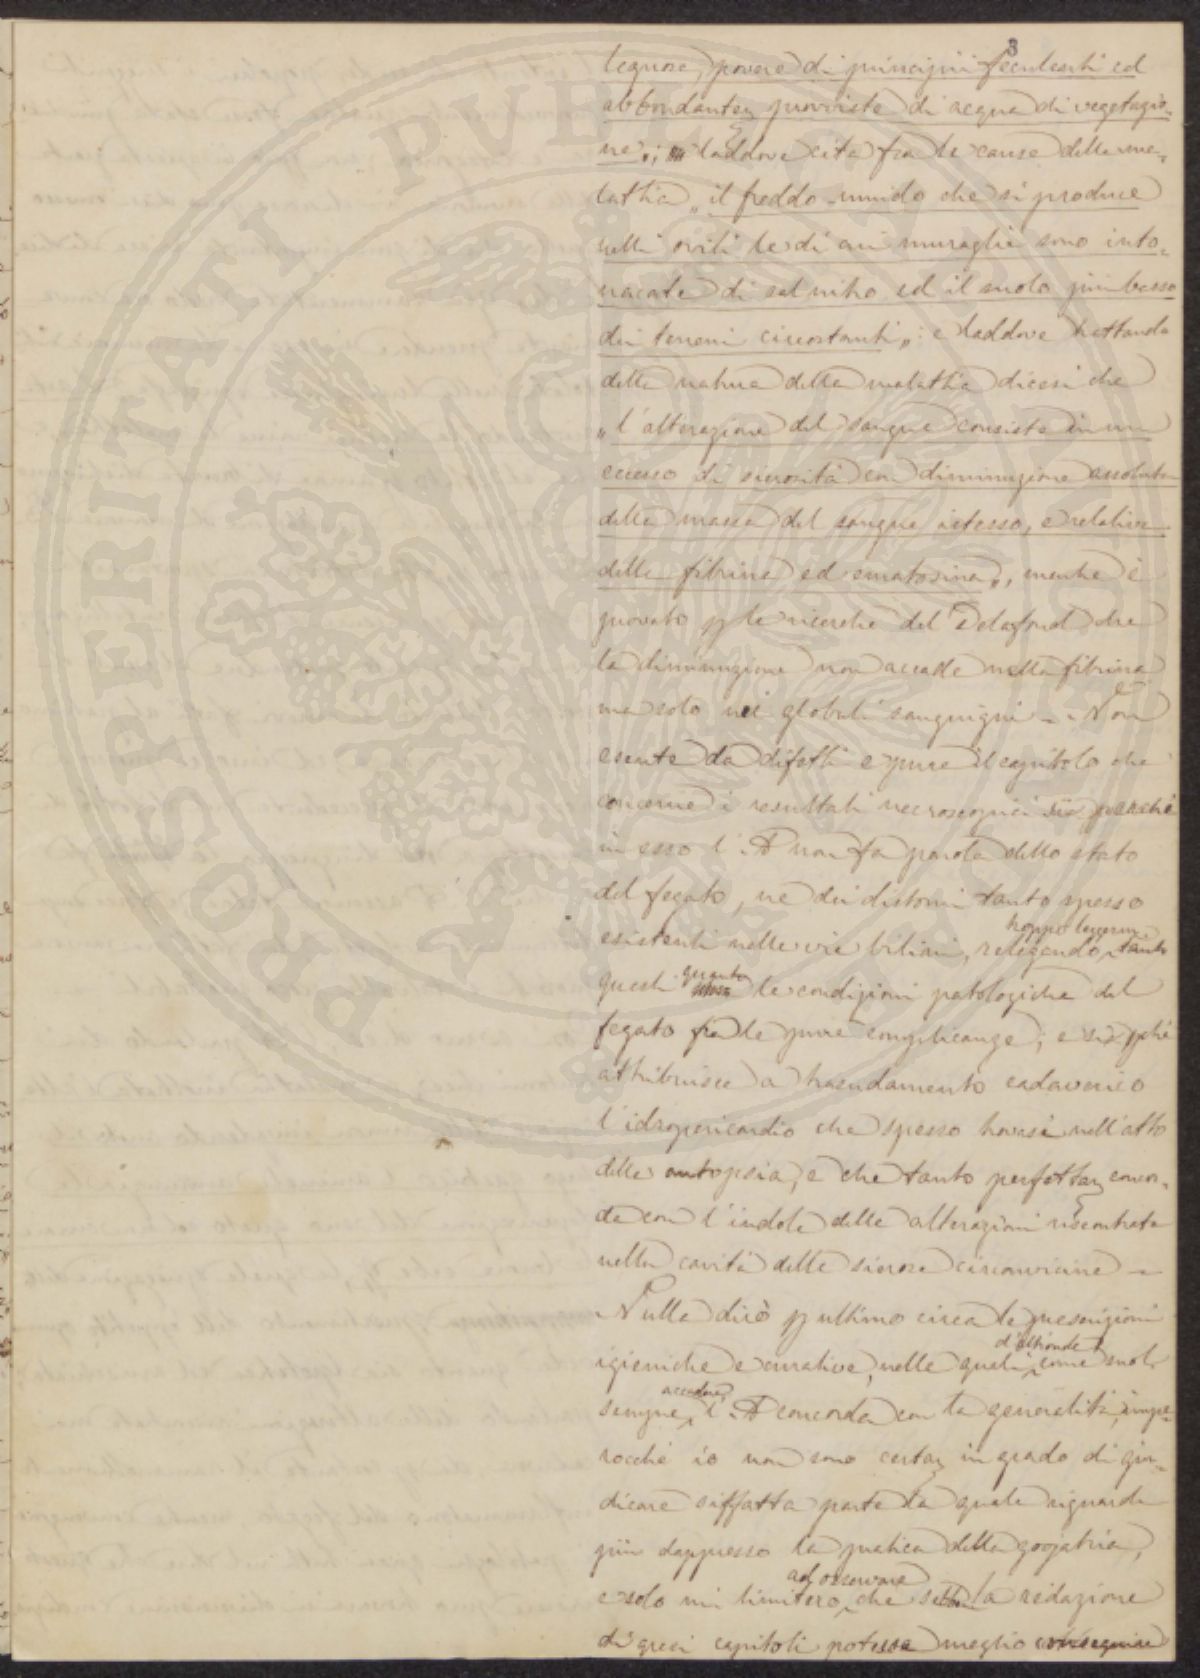 3
legnose, povere di principii feculenti ed
abbondantem provviste di acqua di vegetazio-
ne„; laddove cita fra le cause della ma-
lattia „il freddo-umido che si produce
nelli ovili le di cui muraglie sono into-
nacate di salnitro ed il suolo più basso
dei terreni circostanti„: e laddove trattando
della natura della malattia dicesi che
„l'alterazione del sangue consiste in un
eccesso di sierosità con diminuzione assoluta
della massa del sangue istesso, e relativa
della fibrina ed ematosina„, mentre è
provato p le ricerche del Delafond che
la diminuzione non accade nella fibrina
ma solo nei globuli sanguigni - Non
esente da difetti è pure il capitolo che
concerne i resultati necroscopici sia perchè
in esso l'A non fa parola dello stato
del fegato, nè dei distomi tanto spesso
esistenti nelle vie biliari, relegando troppo tanto
questi quanto le condizioni patologiche del
fegato fra le pure complicanze; e sia pchè
attribuisce a trasudamento cadaverico
l'idropericardio che spesso trovasi nell'atto
della autopsia, e che tanto perfettam concor-
da con l'indole delle alterazioni riscontrate
nella cavità delle sierose circonvicine -
Nulla dirò p ultimo circa le prescrizioni
igieniche e curative, nelle quali d'altronde come suol
sempre accadere, l'A concorda con la generalità, impe-
rocchè io non sono certam in grado di giu-
dicare siffatta parte la quale riguarda
più dappresso la pratica della zoojatria,
e solo mi limiterò ad osservare che la redazione
di questi capitoli potesse meglio conseguire
PROSPERITATI PVBLICAE